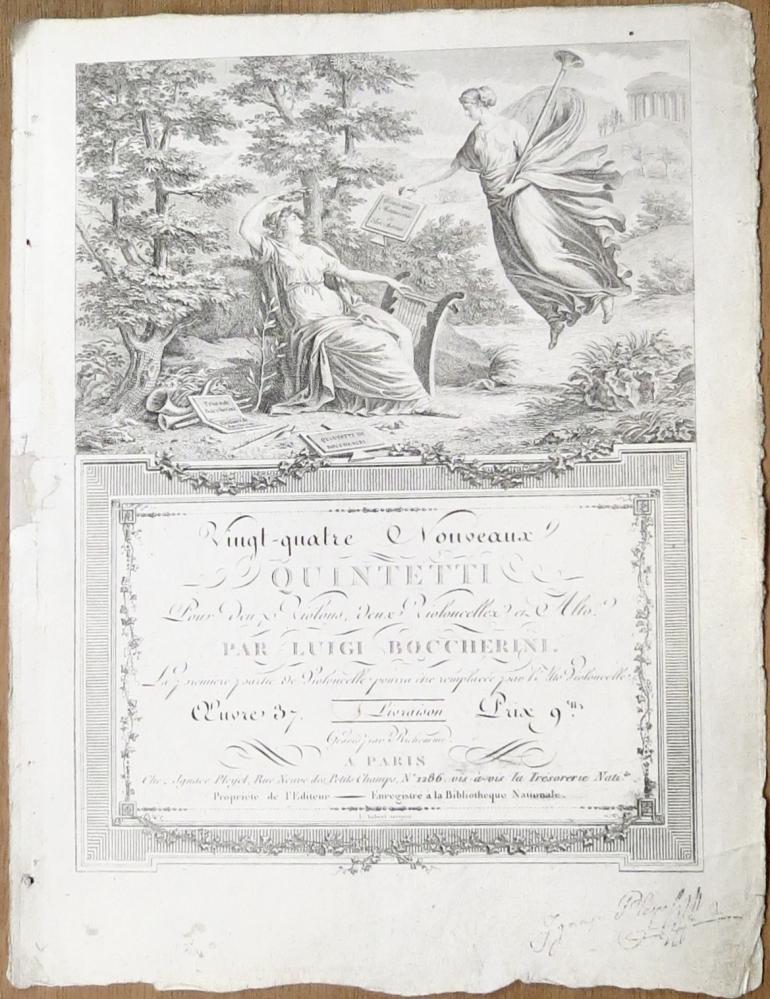 Trios de
Boccherini
QUINTETTI DE
BOCCHERINI
Vingt-quatre Nouveaux
QUINTETTI
Pour deux Violons, deux Violoncelles et Alto.
PAR LUIGI BOCCHERINI.
La première partie de Violoncelle pourra être remplacée par l'Alto Violoncelle.
Œuvre 37. Livraison Prix 9
Gravés par Richomme
A PARIS
Chez Ignace Pleyel, Rue Neuve des Petits Champs, Nº 1286. vis-à-vis la Trésorerie Natle
Propriété de l'Editeur — Enregistré à la Bibliotheque Nationale.
Aubert scripsit
Ignace Pleyel